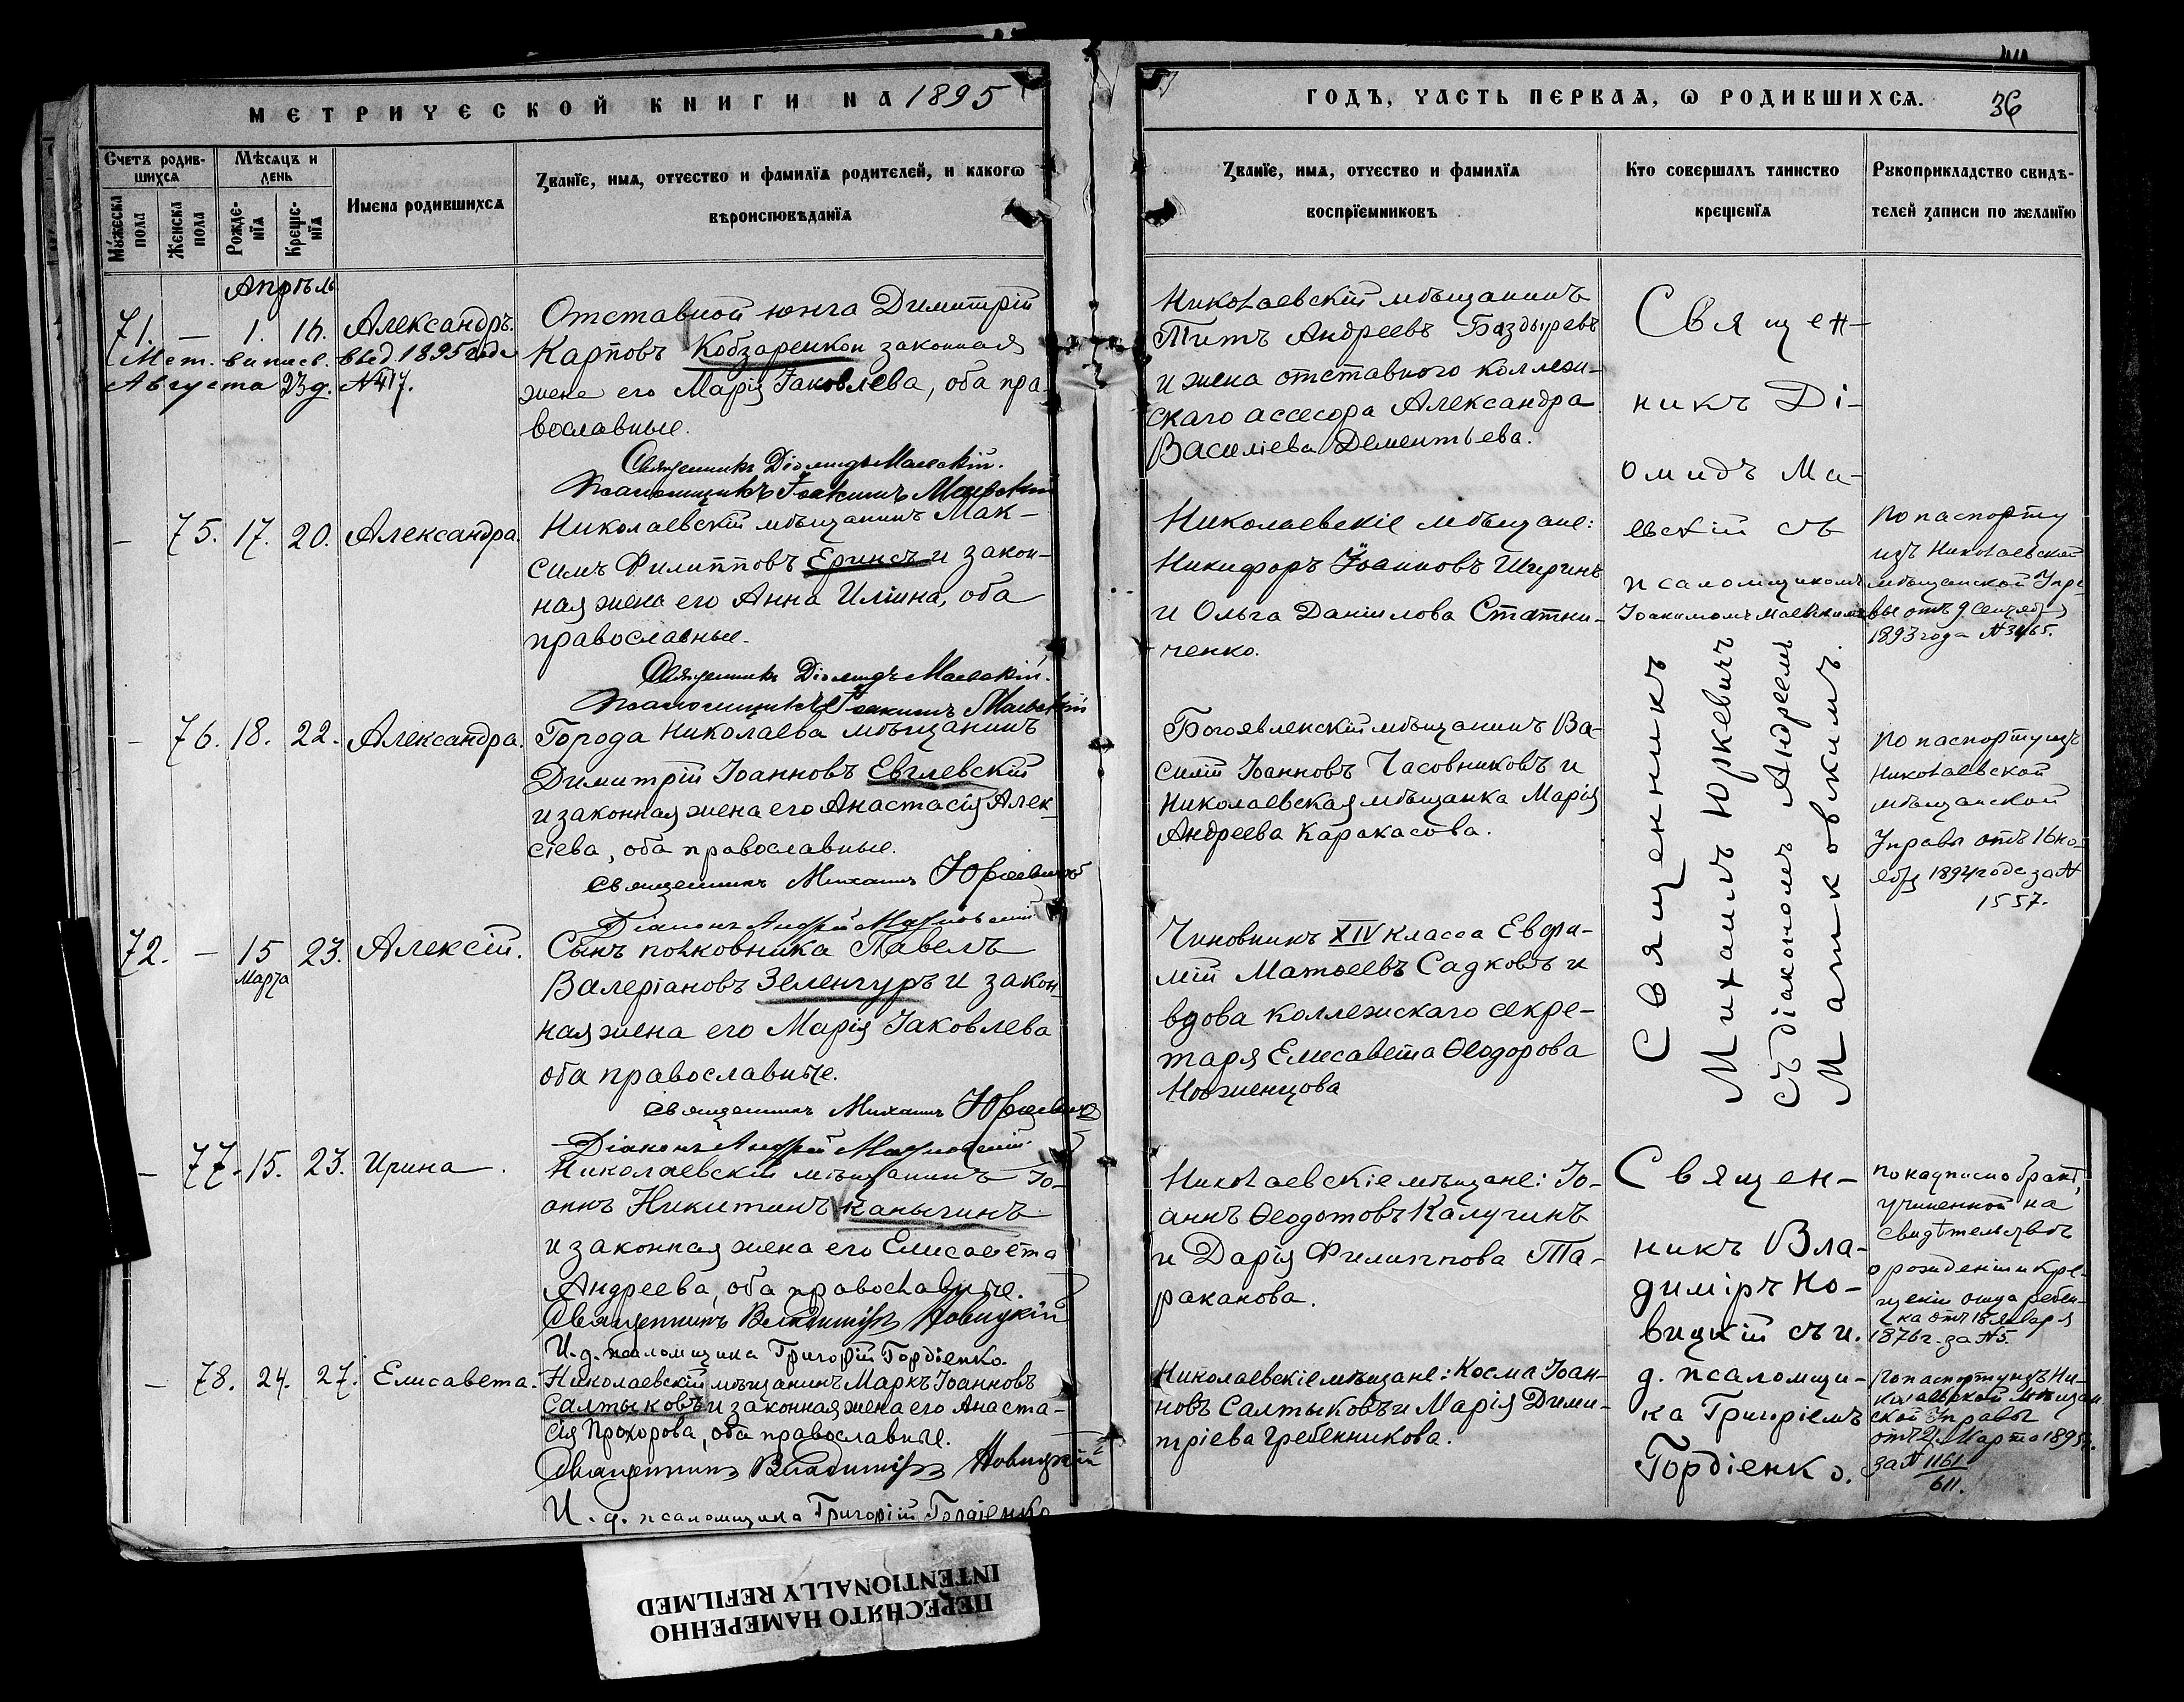 МЕТРИЧЕСКОЙ КНИГИ НА 1895
ГОДЪ, ЧАСТЬ ПЕРВАЯ, Ѡ РОДИВШИХСЯ. 36
Счетъ родив-
шихся
Мѣсяцъ и
день
Имена родившихся
Званїе, имя, отчество и фамилїя родителей, и какогѡ
вѣроисповѣданїя
Мужеска
пола
Женска
пола
Рожде-
нїя
Креще-
нїя
Званїе, имя, отчество и фамилїя
воспрїемниковъ
Кто совершалъ таинство
крещенїя
Рукоприкладство свидѣ-
телей записи по желанїю
Апрѣль
71. — 1. 16. Александръ.
Августа 23 д. №417.
Отставной юнга Димитрій
Карповъ Кобзаренко и законная
жена его Марія Іаковлева, оба пра-
вославные.
Священникъ Діомидъ Маевскій.
Псаломщикъ Іоакимъ Маевскій
Николаевскій мѣщанинъ
Титъ Андреевъ Баздыревъ
и жена отставного коллеж-
скаго ассесора Александра
Василіева Дементьева.
Священ-
никъ Ді-
омидъ Ма-
евскій съ
псаломщикомъ
Іоакимомъ Маевскимъ
— 75. 17. 20. Александра.
Николаевскій мѣщанинъ Мак-
симъ Филипповъ Еринсъ и закон-
ная жена его Анна Иліина, оба
православные.
Священникъ Діомидъ Маевскій.
Псаломщикъ Іоакимъ Маевскій
Николаевскіе мѣщане:
Никифоръ Іоанновъ Ширинъ
и Ольга Даніилова Статни-
ченко.
По паспорту
изъ Николаевской
мѣщанской Упра-
вы отъ 9 Сентября
1893 года №3465.
— 76. 18. 22. Александра.
Города Николаева мѣщанинъ
Димитрій Іоанновъ Евглевскій
и законная жена его Анастасія Алек-
сіева, оба православные.
Священникъ Михаилъ Юркевичъ
Діаконъ Андрей Матковскій
Богоявленскій мѣщанинъ Ва-
силій Іоанновъ Часовниковъ и
Николаевская мѣщанка Марія
Андреева Каракасова.
Священникъ
Михаилъ Юркевичъ
съ діакономъ Андреемъ
Матковскимъ.
По паспорту изъ
Николаевской
мѣщанской
Управы отъ 16 но-
ября 1894 года за №
1557.
72. — 15 23. Алексій.
Марта
Сынъ полковника Павелъ
Валеріановъ Зеленгуръ и закон-
ная жена его Марія Іаковлева
оба православные.
Священникъ Михаилъ Юркевичъ
Діаконъ Андрей Матковскій
Чиновникъ XIV класса Евфи-
мій Матѳеевъ Садковъ и
вдова коллежскаго секре-
таря Елисавета Ѳеодорова
— 77. 15. 23. Ирина.
Николаевскій мѣщанинъ Іо-
аннъ Никитинъ Капыгинъ
и законная жена его Елисавета
Андреева, оба православные.
Священникъ Владиміръ Новицкій
И. д. псаломщика Григорій Гордіенко.
Николаевскіе мѣщане: Іо-
аннъ Ѳеодотовъ Калугинъ
и Дарія Филиппова Та-
раканова.
Священ-
никъ Вла-
диміръ Но-
вицкій съ и.
д. псаломщи-
ка Григоріемъ
Гордіенко.
По надписи о бракѣ,
учиненной на
свидѣтельствѣ
о рожденіи и кре-
щеніи отца ребен-
ка отъ 18 января
1876 г. за №5.
— 78. 24. 27. Елисавета.
Николаевскій мѣщанинъ Маркъ Іоанновъ
Салтыковъ и законная жена его Анаста-
сія Прохорова, оба православные.
Священникъ Владиміръ Новицкій
И. д. псаломщика Григорій Гордіенко
Николаевскіе мѣщане: Косма Іоан-
новъ Салтыковъ и Марія Дими-
тріева Гребенникова.
По паспорту изъ Ни-
колаевской мѣщан-
ской Управы
Марта 1895 г.
за № 1161
611.
ПЕРЕСНЯТО НАМЕРЕННО
INTENTIONALLY REFILMED